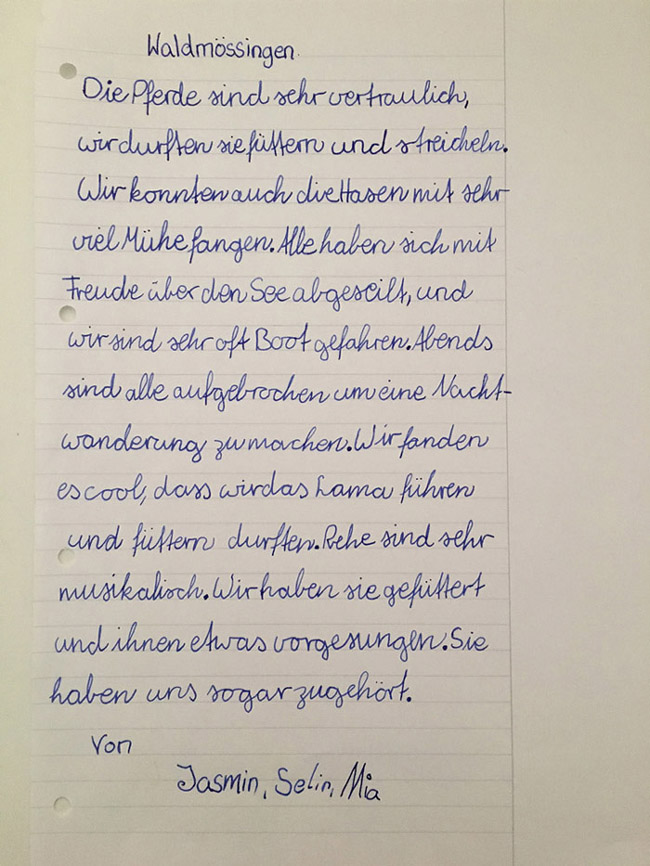 Waldmössingen
Die Pferde sind sehr vertraulich,
wir durften sie füttern und streicheln.
Wir konnten auch die Hasen mit sehr
viel Mühe fangen. Alle haben sich mit
Freude über den See abgeseilt, und
wir sind sehr oft Boot gefahren. Abends
sind alle aufgebrochen um eine Nacht-
wanderung zu machen. Wir fanden
es cool, dass wir das Lama führen
und füttern durften. Rehe sind sehr
musikalisch. Wir haben sie gefüttert
und ihnen etwas vorgesungen. Sie
haben uns sogar zugehört.
Von
Jasmin, Selin, Mia